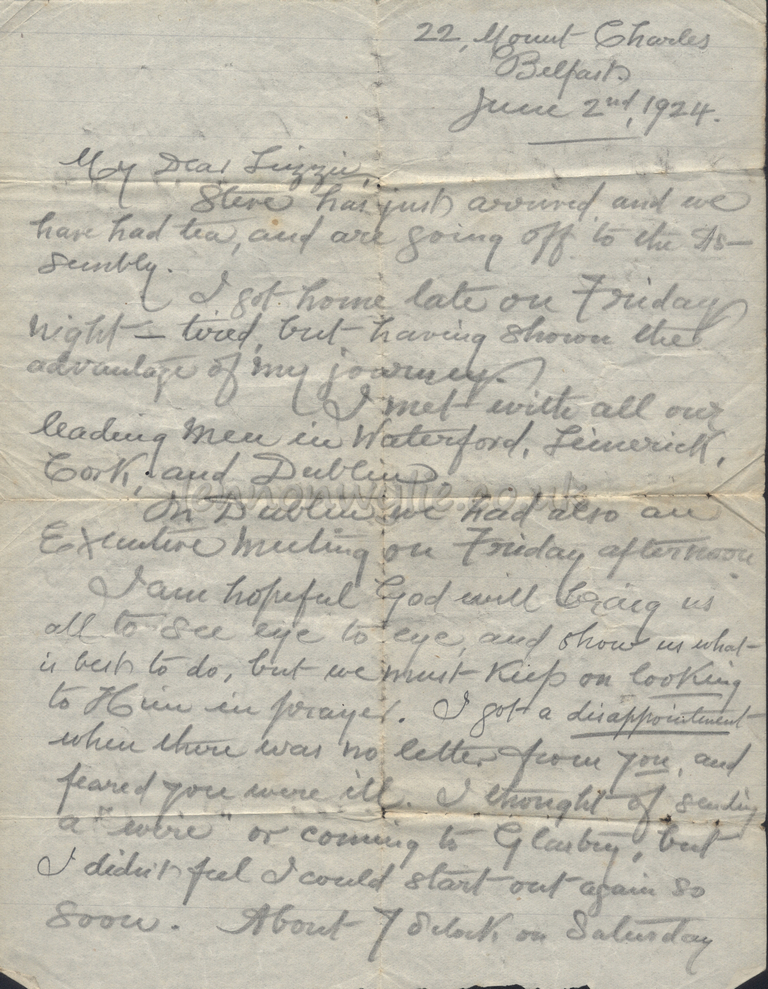 22, Mount Charles
Belfast
June 2nd, 1924.
My Dear Lizzie,
Steve has just arrived and we
have had tea, and are going off to the As-
sembly.
I got home late on Friday
night — tired, but having shown the
advantage of my journey.
I met with all our
leading men in Waterford, Limerick,
Cork, and Dublin.
In Dublin we had also an
Executive Meeting on Friday afternoon
I am hopeful God will bring us
all to see eye to eye, and show us what
is best to do, but we must keep on looking
to Him in prayer. I got a disappointment
when there was no letter from you, and
feared you were ill. I thought of sending
a "wire" or coming to, but
I didn't feel I could start out again so
soon. About 7 o'clock on Saturday